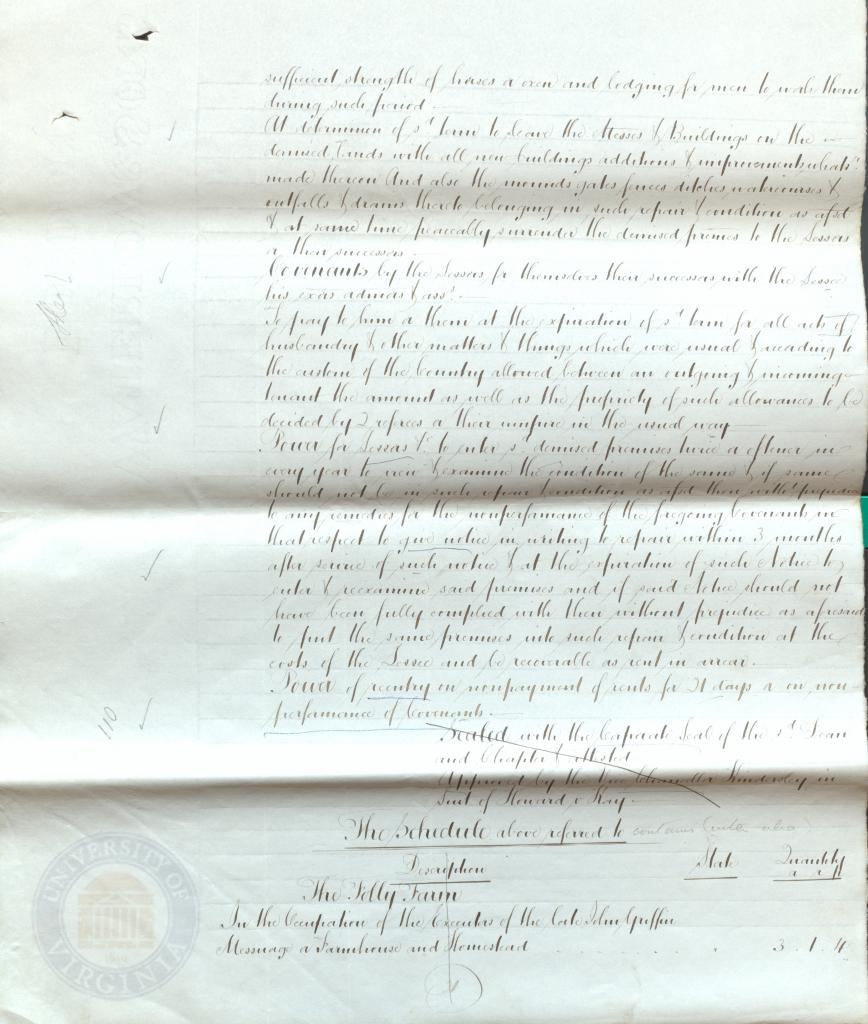 sufficient strength of horses or oxen and lodging for men to work them
during such period.
At determinon of sd term to leave the Messes & Buildings on the
demised Lands with all new buildings additions & improvements whatsr
made thereon And also the mounds gates fences ditches watercourses &
outfalls & drains thereto belonging in such repair & condition as afsd
& at same time peaceably surrender the demised premes to the Lessors
or their successors.
Covenants by the Lessors for themselves their successors with the Lessee
his exors admors & ass.
To pay to him or them at the expiration of sd term for all acts of
husbandry & other matters & things which were usual & according to
the custom of the Country allowed between an outgoing & incoming
tenant the amount as well as the propriety of such allowances to be
decided by 2 referees or their umpire in the usual way
Power for Lessors &c to enter sd demised premises twice or oftener in
every year to view & examine the condition of the same & if same
should not be in such repair & condition as afsd then witht prejudice
to any remedies for the nonperformance of the foregoing Covenants in
that respect to give notice in writing to repair within 3 months
after service of such notice & at the expiration of such Notice to
enter & reexamine said premises and if said Notice should not
have been fully complied with then without prejudice as aforesaid
to put the same premises into such repair & condition at the
costs of the Lessee and be recoverable as rent in arrear.
Power of reentry on nonpayment of rents for 21 days or on non
performance of Covenants.
110
Sealed with the Corporate Seal of the sd Dean
and Chapter & attested
Approved by the Vice Chancellor Kindersley in
Suit of Howard v Kay.
The Schedule above referred to contains (inter alia)
Description State Quantity
a r p
The Folly Farm
In the Occupation of the Executors of the late John Griffin
Messuage or Farmhouse and Homestead 3 . 1 . 4
UNIVERSITY OF VIRGINIA
1819